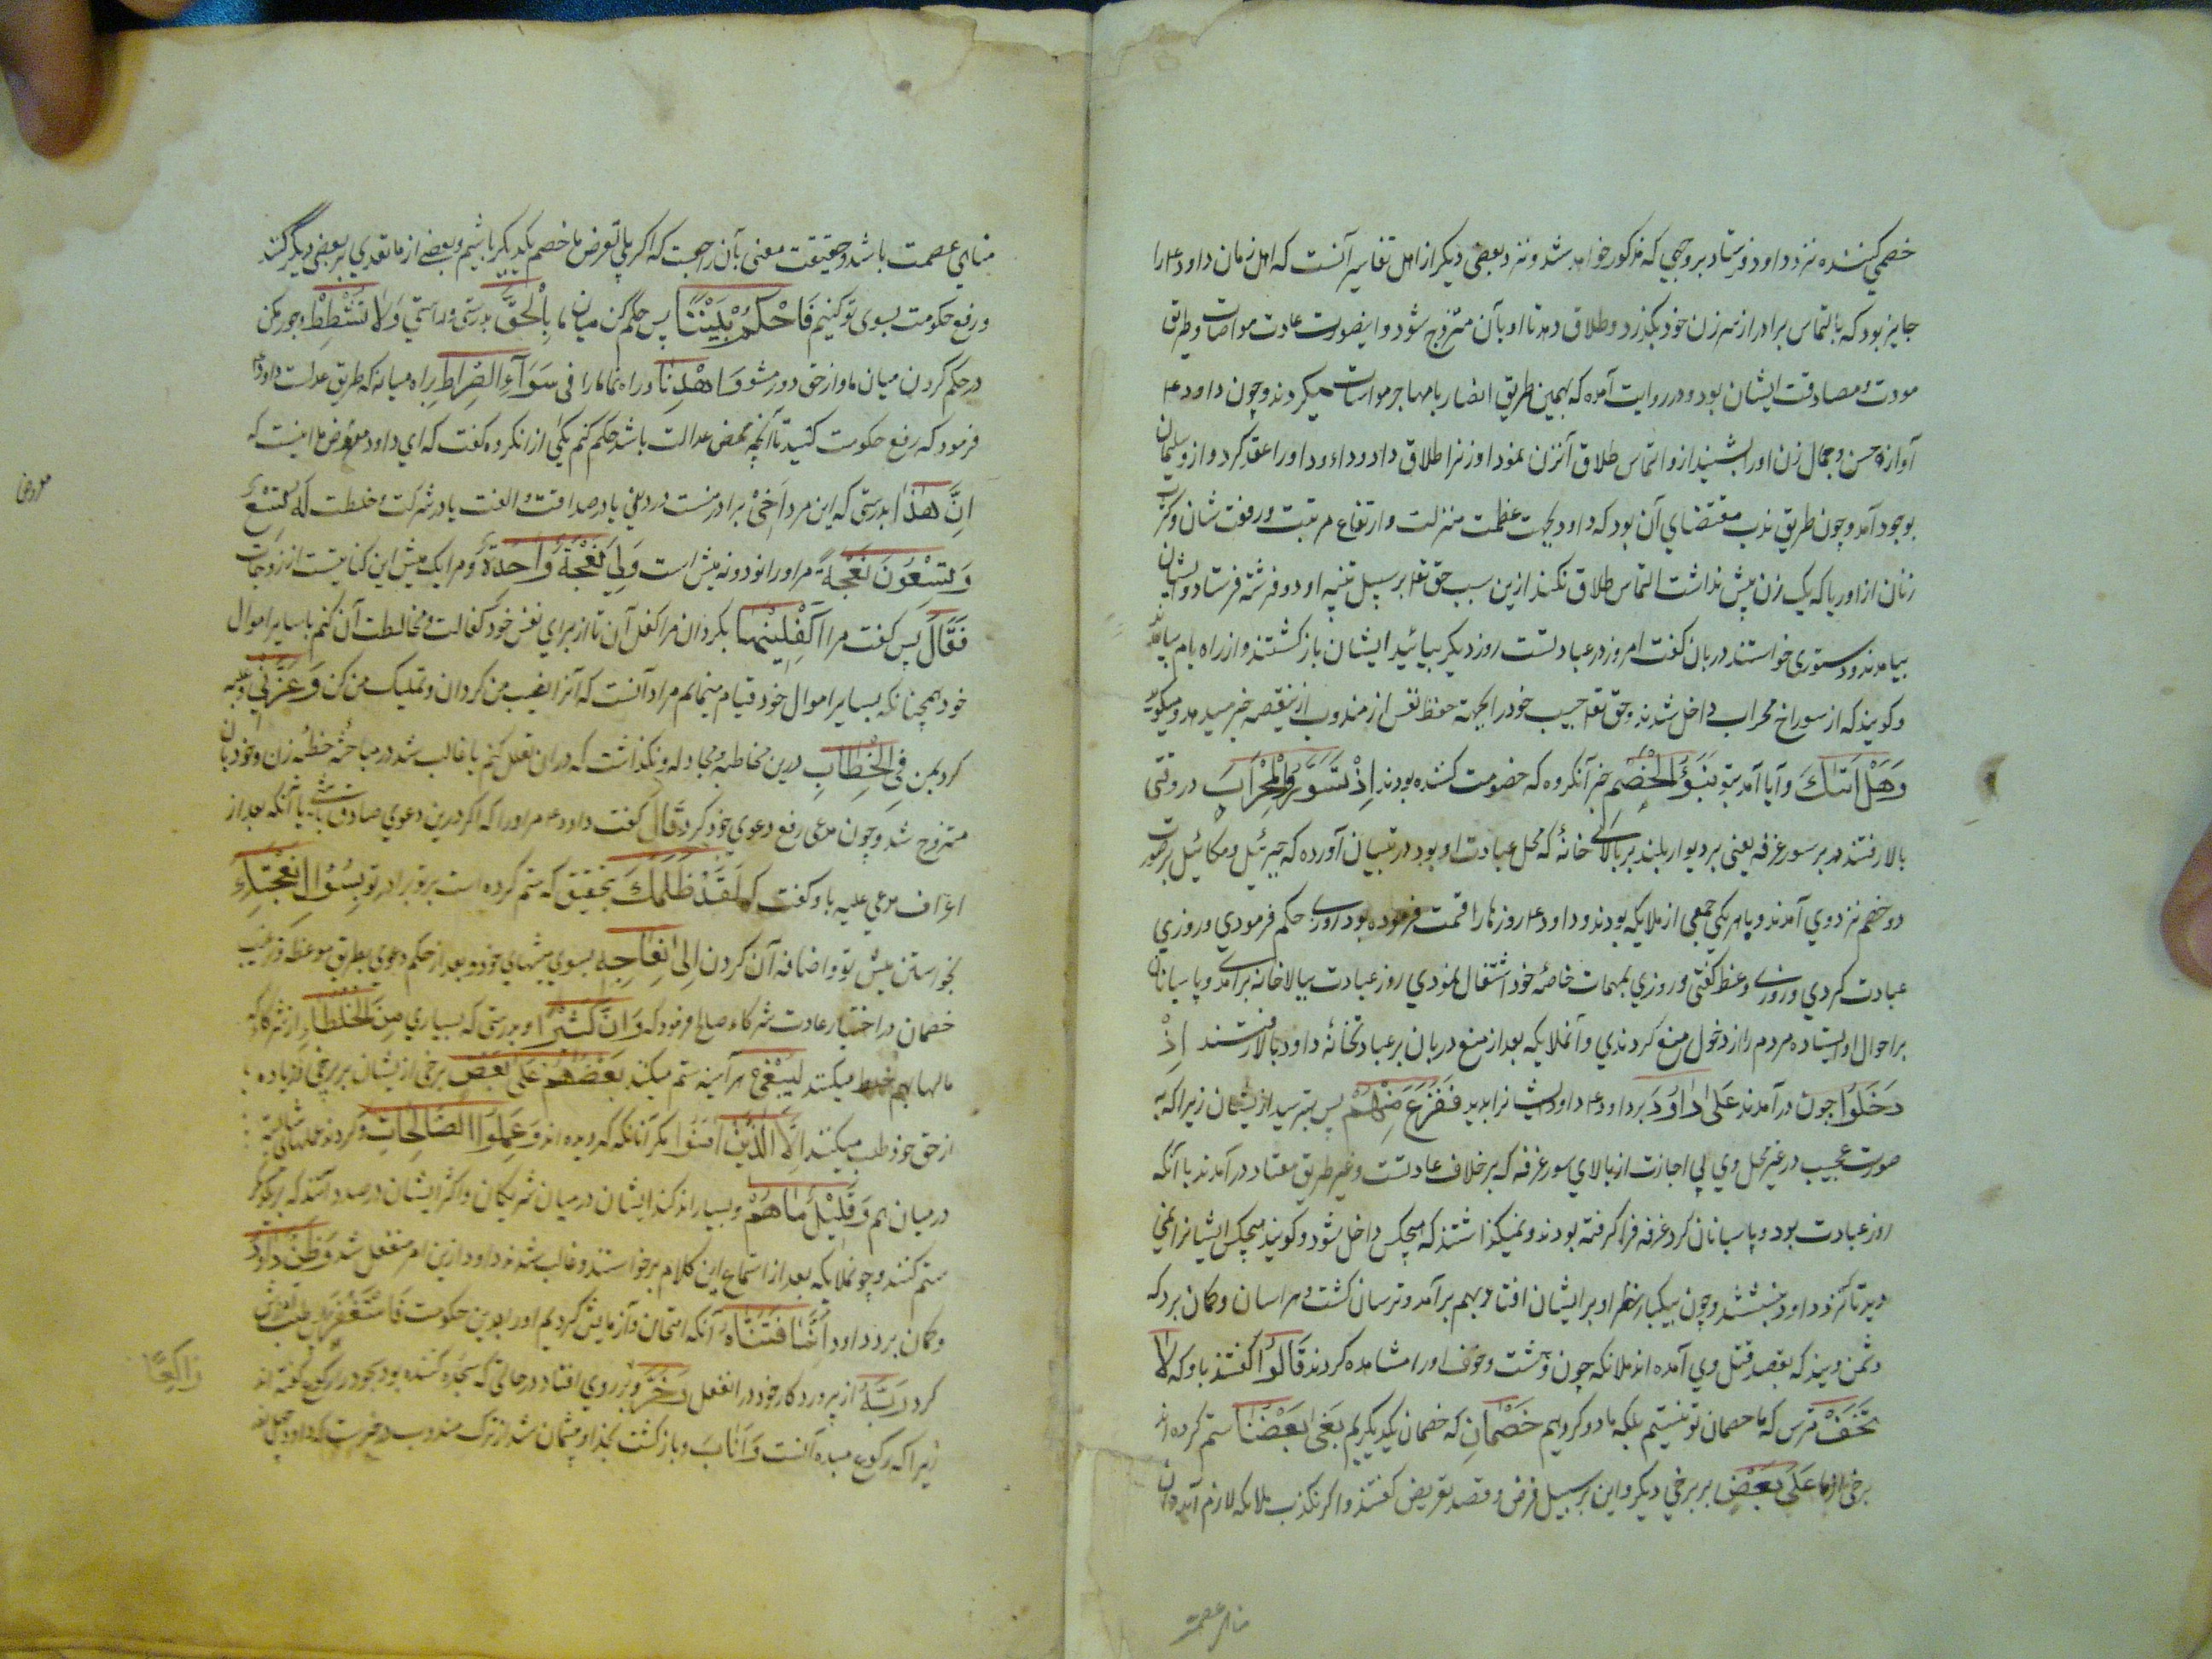 خصمی کننده نزد داود فرستاد بر وجهی که مذکور خواهد شد و نزد بعضی دیگر از اهل تفاسیر آنست که اهل زمان داود ع را
جایز بود که بالتماس برادر از سر زن خود بگذرد و طلاق دهد تا او بآن متزوج شود و اینصورت عادت مواصات و طریق
مودت و مصادقت ایشان بود و در روایت آمده که بهمین طریق انصار با مهاجر مواسات میکردند و چون داود ع
آوازه حسن و جمال زن اوریا بشنید ازو التماس طلاق آنزن نمود اوزنرا طلاق داد و داود اورا عقد کرد و ازو سلیمان
بوجود آمد و چون طریق ندب مقتضای آن بود که داود بجهت عظمت منزلت و ارتفاع مرتبت و رفعت شان و کثرت
زنان از اوریا که یک زن بیش نداشت التماس طلاق نکند ازین سبب حق تعا بر سبیل تنبیه او دو فرشته فرستاد و ایشان
بیامدند و دستوری خواستند دربان گفت امروز در عبادتست روز دیگر بیائید ایشان بازگشتند و از راه بام بیامدند
و گویند که از سوراخ محراب داخل شدند و حق تعا حبیب خود را بجهته حفظ نفس از مندوب ازینقصه خبر میدهد و میگوید
وَهَلْ اَتیٰكَ و آیا آمد بتو نَبَؤُ الْخَصْمِ خبر آنگروه که خصومت کننده بودند اِذْ تَسَوَّرُوا الْمِحْرَابَ در وقتی
بالا رفتند بر سور غرفه یعنی بر دیوار بلند بر بالای خانهٔ که محل عبادت او بود در تبیان آورده که جبرئیل و میکائیل بر صورت
دو خصم نزد وی آمدند و با هر یکی جمعی از ملایکه بودند و داود ع روزها را قسمت فرموده بود روزی حکم فرمودی و روزی
عبادت کردی و روزی وعظ گفتی و روزی بمهمات خاصهٔ خود اشتغال نمودی روز عبادت ببالا خانه برآمد و پاسبانان
بر احوال او ایستاده مردم را از دخول منع کردندی و آنملایکه بعد از منع دربان بر عبادتخانهٔ داود بالا رفتند اِذْ
دَخَلُوا چون درآمدند عَلیٰ دَاوُدَ بر داود ع داود ایشانرا بدید فَفَزِعَ مِنْهُمْ پس بترسید از یشان زیرا که به
صورت عجیب در غیر محل وی بی اجازت از بالای سور غرفه که بر خلاف عادتست و غیر طریق معتاد درآمدند با آنکه
روز عبادت بود و پاسبانان گرد غرفه فرا گرفته بودند و نمیگذاشتند که هیچکس داخل شود و گویند هیچکس ایشانرا نمی
دید تا نزد داود بنشستند و چون بیکبار نظر او بر ایشان افتاد بهم برآمد و ترسان گشت و هراسان و گمان برد که
دشمن ویند که بقصد قتل وی آمده اند ملائکه چون وحشت و خوف اورا مشاهده کردند قَالُوْا گفتند باو که لَا
تَخَفْ مترس که ما خصمان تو نیستیم بلکه ما دو گروهیم خَصْمَانِ که خصمان یکدیگریم بَغیٰ بَعْضُنَا ستم کرده اند
برخی از ما عَلیٰ بَعْضٍ بر برخی دیگر و این بر سبیل فرض و قصد تعریض گفتند و اگر نه کذب ملایکه لازم آید و آن
منافی عصمت
منافی عصمت باشد و حقیقت معنی بآن راجعست که اگر بالتعرض ما خصم یکدیگر باشیم و بعضی از ما تعدی بر بعضی دیگر کند
و رفع حکومت بسوی تو کنیم فَاحْكُمْ بَيْنَنَا پس حکم کن میان ما بِالْحَقِّ بدرستی و راستی وَلَا تُشْطِطْ و جور مکن
در حکم کردن میان ما و از حق دور مشو وَاهْدِنَا و راه نما ما را فی سَوَآءِ الصِّرَاطِ براه میانه که طریق عدلست داود
فرمود که رفع حکومت کنید تا آنچه محض عدالت باشد حکم کنم یکی از انگروه گفت که ای داود معروض ما اینست که
اِنَّ هٰذَا بدرستی که این مرد اَخِیْ برادر منست در دینی یا در صداقت و الفت یا در شرکت و خلطت لَهُ تِسْعٌ
وَتِسْعُونَ نَعْجَةً مر اورا نود و نه میش است وَلِیَ نَعْجَةٌ وَاحِدَةٌ و مرا یک میش این کنایتست از زوجات
فَقَالَ پس گفت مرا اَكْفِلْنِيْهَا بگردان مرا کفل آن تا از برای نفس خود کفالت و مخالطت آن کنم با سایر اموال
خود همچنانکه بسایر اموال خود قیام مینمایم مراد آنست که آنرا نصیب من گردان و تملیک من کن وَعَزَّنِی و غلبه
کرد بمن فِی الْخِطَابِ درین مخاطبه و مجادله و نگذاشت که دران تعلل کنم یا غالب شد در مباحثهٔ خطبه زن و خود بان
متزوج شد و چون مدعی رفع دعوی خود کرد قَالَ گفت داود ع مر اورا که اگر درین دعوی صادق باشی یا آنکه بعد از
اعتراف مدعی علیه باو گفت که لَقَدْ ظَلَمَكَ بتحقیق که ستم کرده است بر تو برادر تو بِسُؤَالِ نَعْجَتِكَ
بخواستن میش تو و اضافه آن کردن اِلیٰ نِعَاجِهِ بسوی میشهای خود و بعد از حکم دعوی بطریق موعظه و ترغیب
خصمان در اختیار عادت شرکاء صالح فرمود که وَاِنَّ كَثِيْرًا و بدرستی که بسیاری مِنَ الْخُلَطَاءِ از شرکاء که
مالها بهم خلط میکنند لَيَبْغِیْ هر آینه ستم میکند بَعْضُهُمْ عَلیٰ بَعْضٍ برخی از یشان بر برخی و زیاده
از حق خود طلب میکنند اِلَّا الَّذِيْنَ اٰمَنُوا مگر آنانکه گرویده اند وَعَمِلُوا الصَّالِحَاتِ و کردند عملهای شایسته
در میان هم وَقَلِيْلٌ مَا هُمْ و بسیار اندکند ایشان در میان شریکان و اکثر ایشان در صدد آنند که بر یکدیگر
ستم کنند و چون ملایکه بعد از استماع این کلام برخواستند و غایب شدند داود ازین امر منفعل شد وَظَنَّ دَاوُدُ
و گمان برد داود اَنَّمَا فَتَنَّاهُ آنکه امتحان و آزمایش کردیم اورا بدین حکومت فَاسْتَغْفَرَ پس طلب آمرزش
کرد رَبَّهُ از پروردگار خود در انفعل وَخَرَّ و بر روی افتاد در حالتی که سجده کننده بود سجود را رکوع گفته اند
زیرا که رکوع مبدء آنست وَاَنَابَ و بازگشت بخدا و پشیمان شد از ترک مندوب
رَاكِعًا